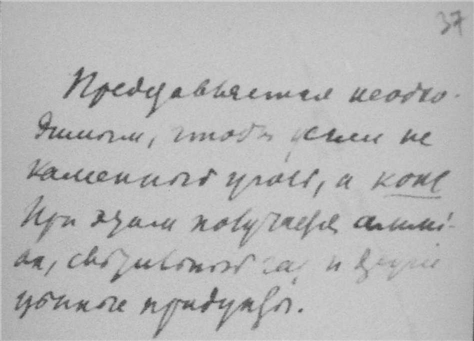 37
Представляется необхо-
димым, чтобы жгли не
каменный уголь, а кокс
При этом получается аммі-
ак, светильный газ и другіе
цѣнные продукты.